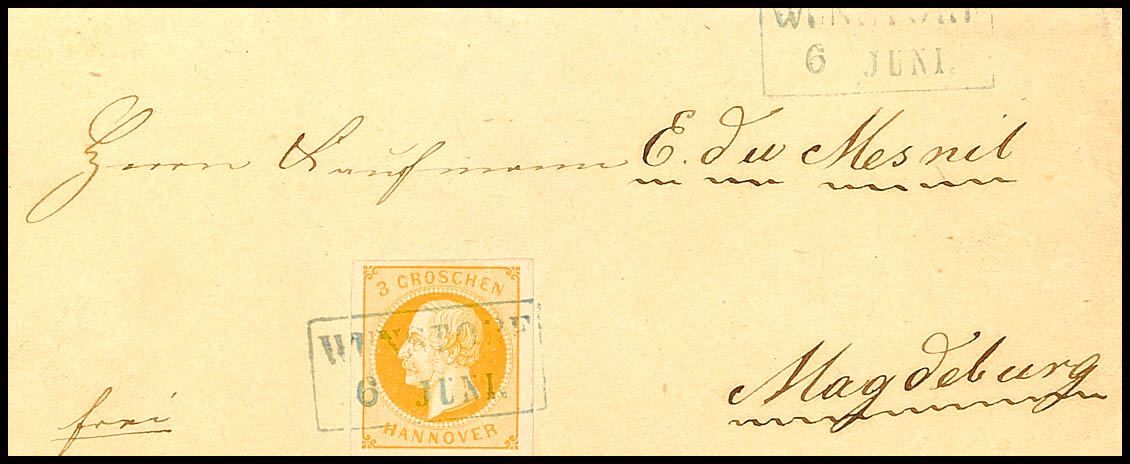 WUNSTORF
6 JUNI.
Herrn Kaufmann E. du Mesnil
3 GROSCHEN
WUNSTORF
6 JUNI.
HANNOVER
Magdeburg
frei